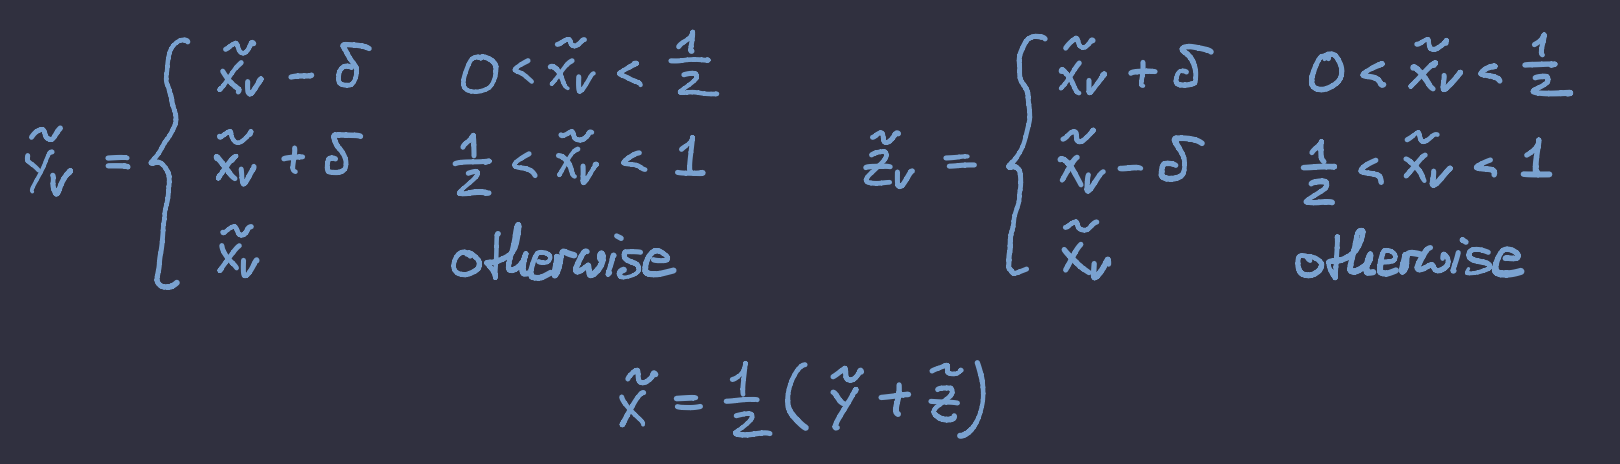 ỹ_v = { x̃_v − δ   0 < x̃_v < 1/2
x̃_v + δ   1/2 < x̃_v < 1
x̃_v   otherwise
z̃_v = { x̃_v + δ   0 < x̃_v < 1/2
x̃_v − δ   1/2 < x̃_v < 1
x̃_v   otherwise
x̃ = 1/2 ( ỹ + z̃ )